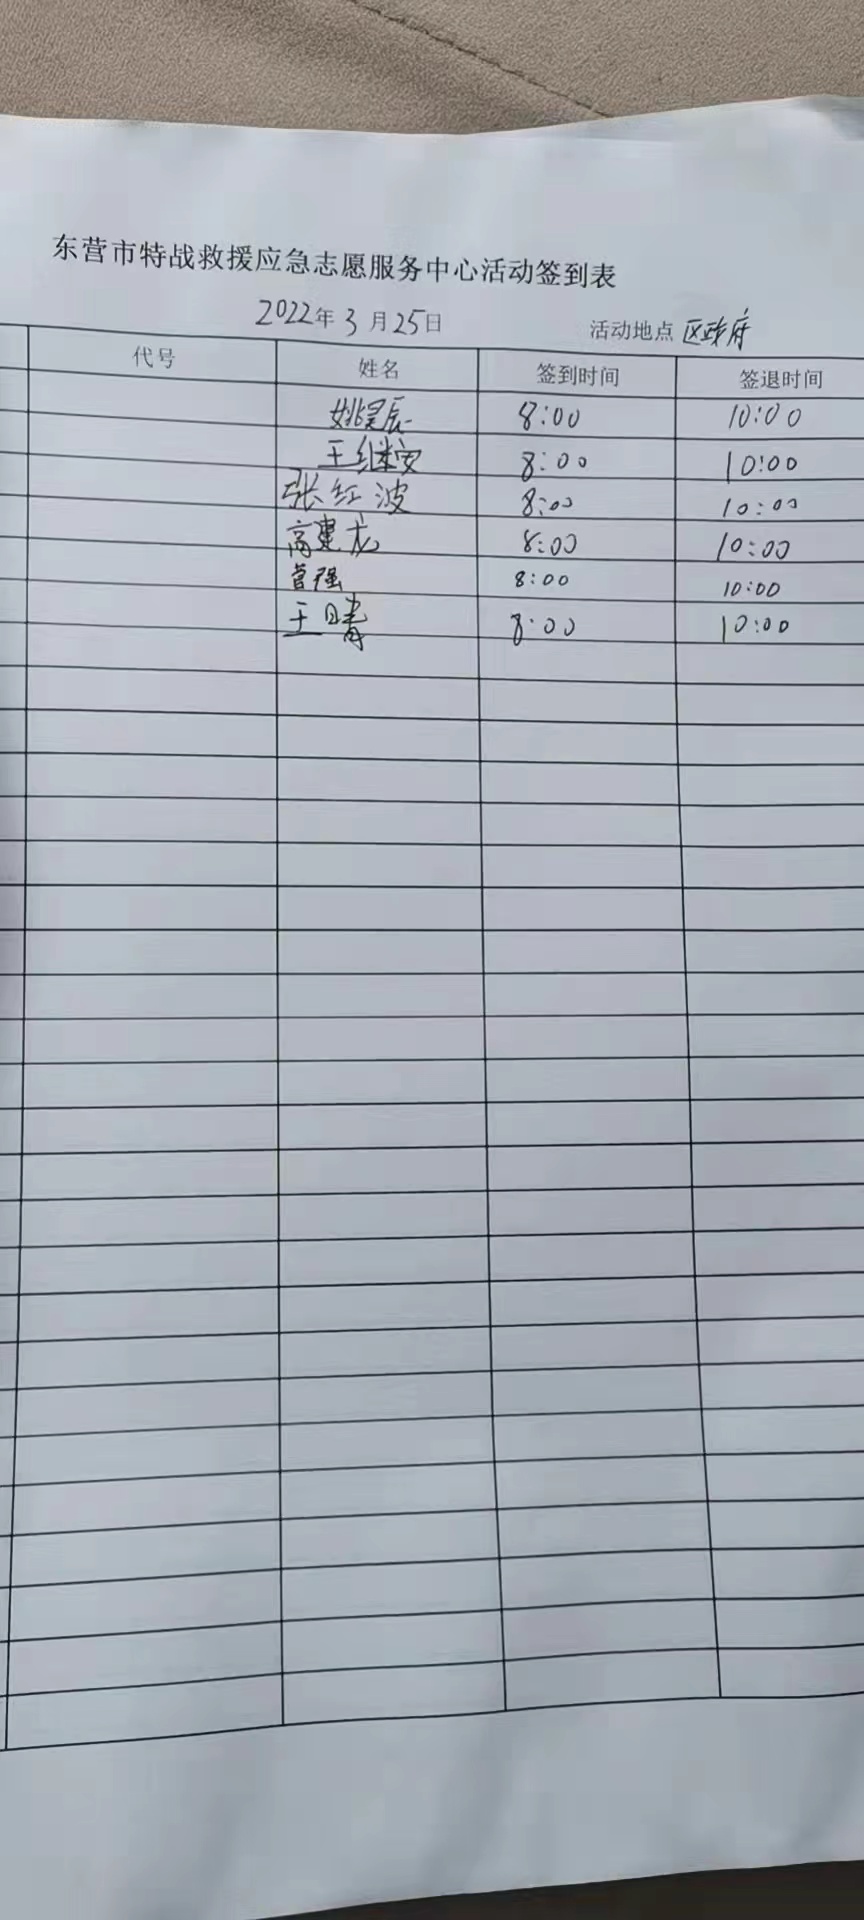 东营市特战救援应急志愿服务中心活动签到表
2022年3月25日 活动地点 区政府
代号 姓名 签到时间 签退时间
姚昊辰 8:00 10:00
王继安 8:00 10:00
张红波 8:00 10:00
高建龙 8:00 10:00
菅强 8:00 10:00
王晴 8:00 10:00